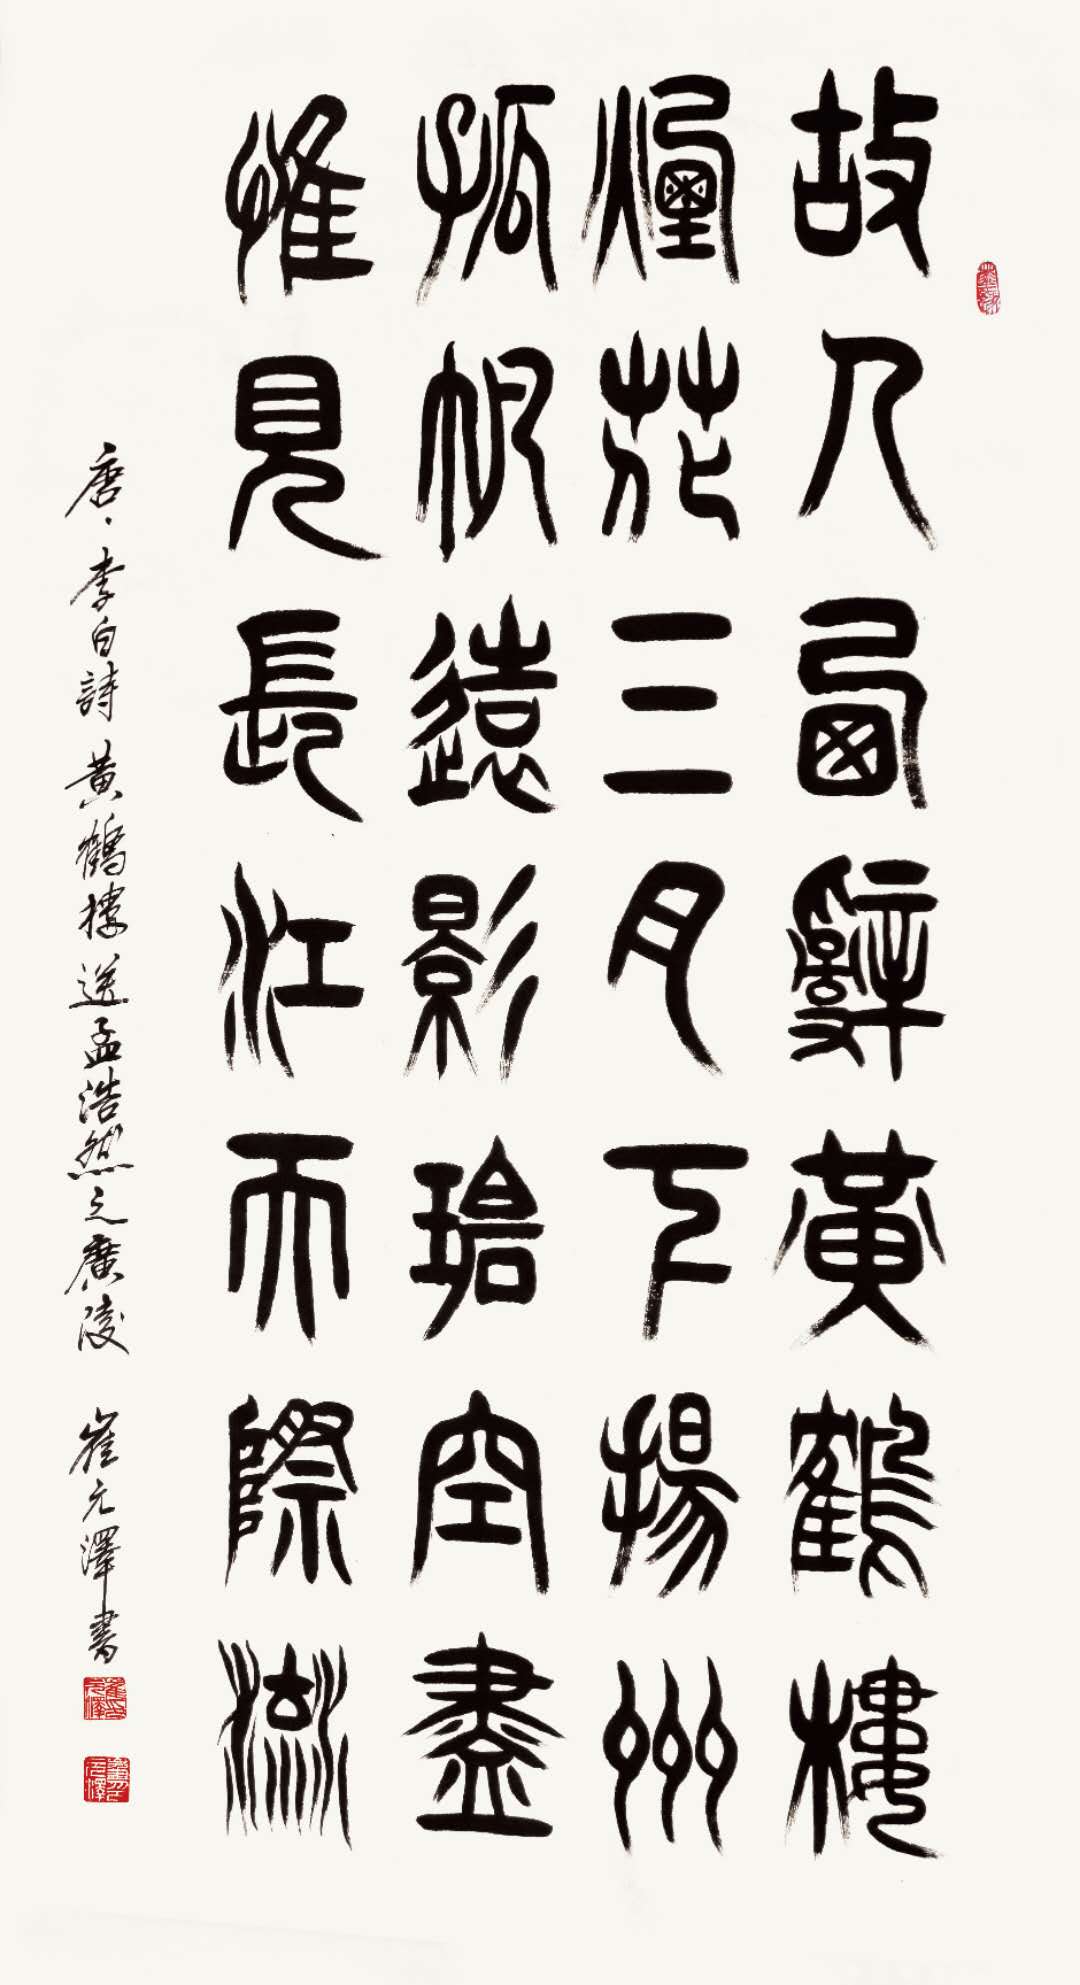 故人西辭黃鶴樓
煙花三月下揚州
孤帆遠影碧空盡
惟見長江天際流
唐、李白詩黃鶴樓送孟浩然之廣陵 崔元澤書